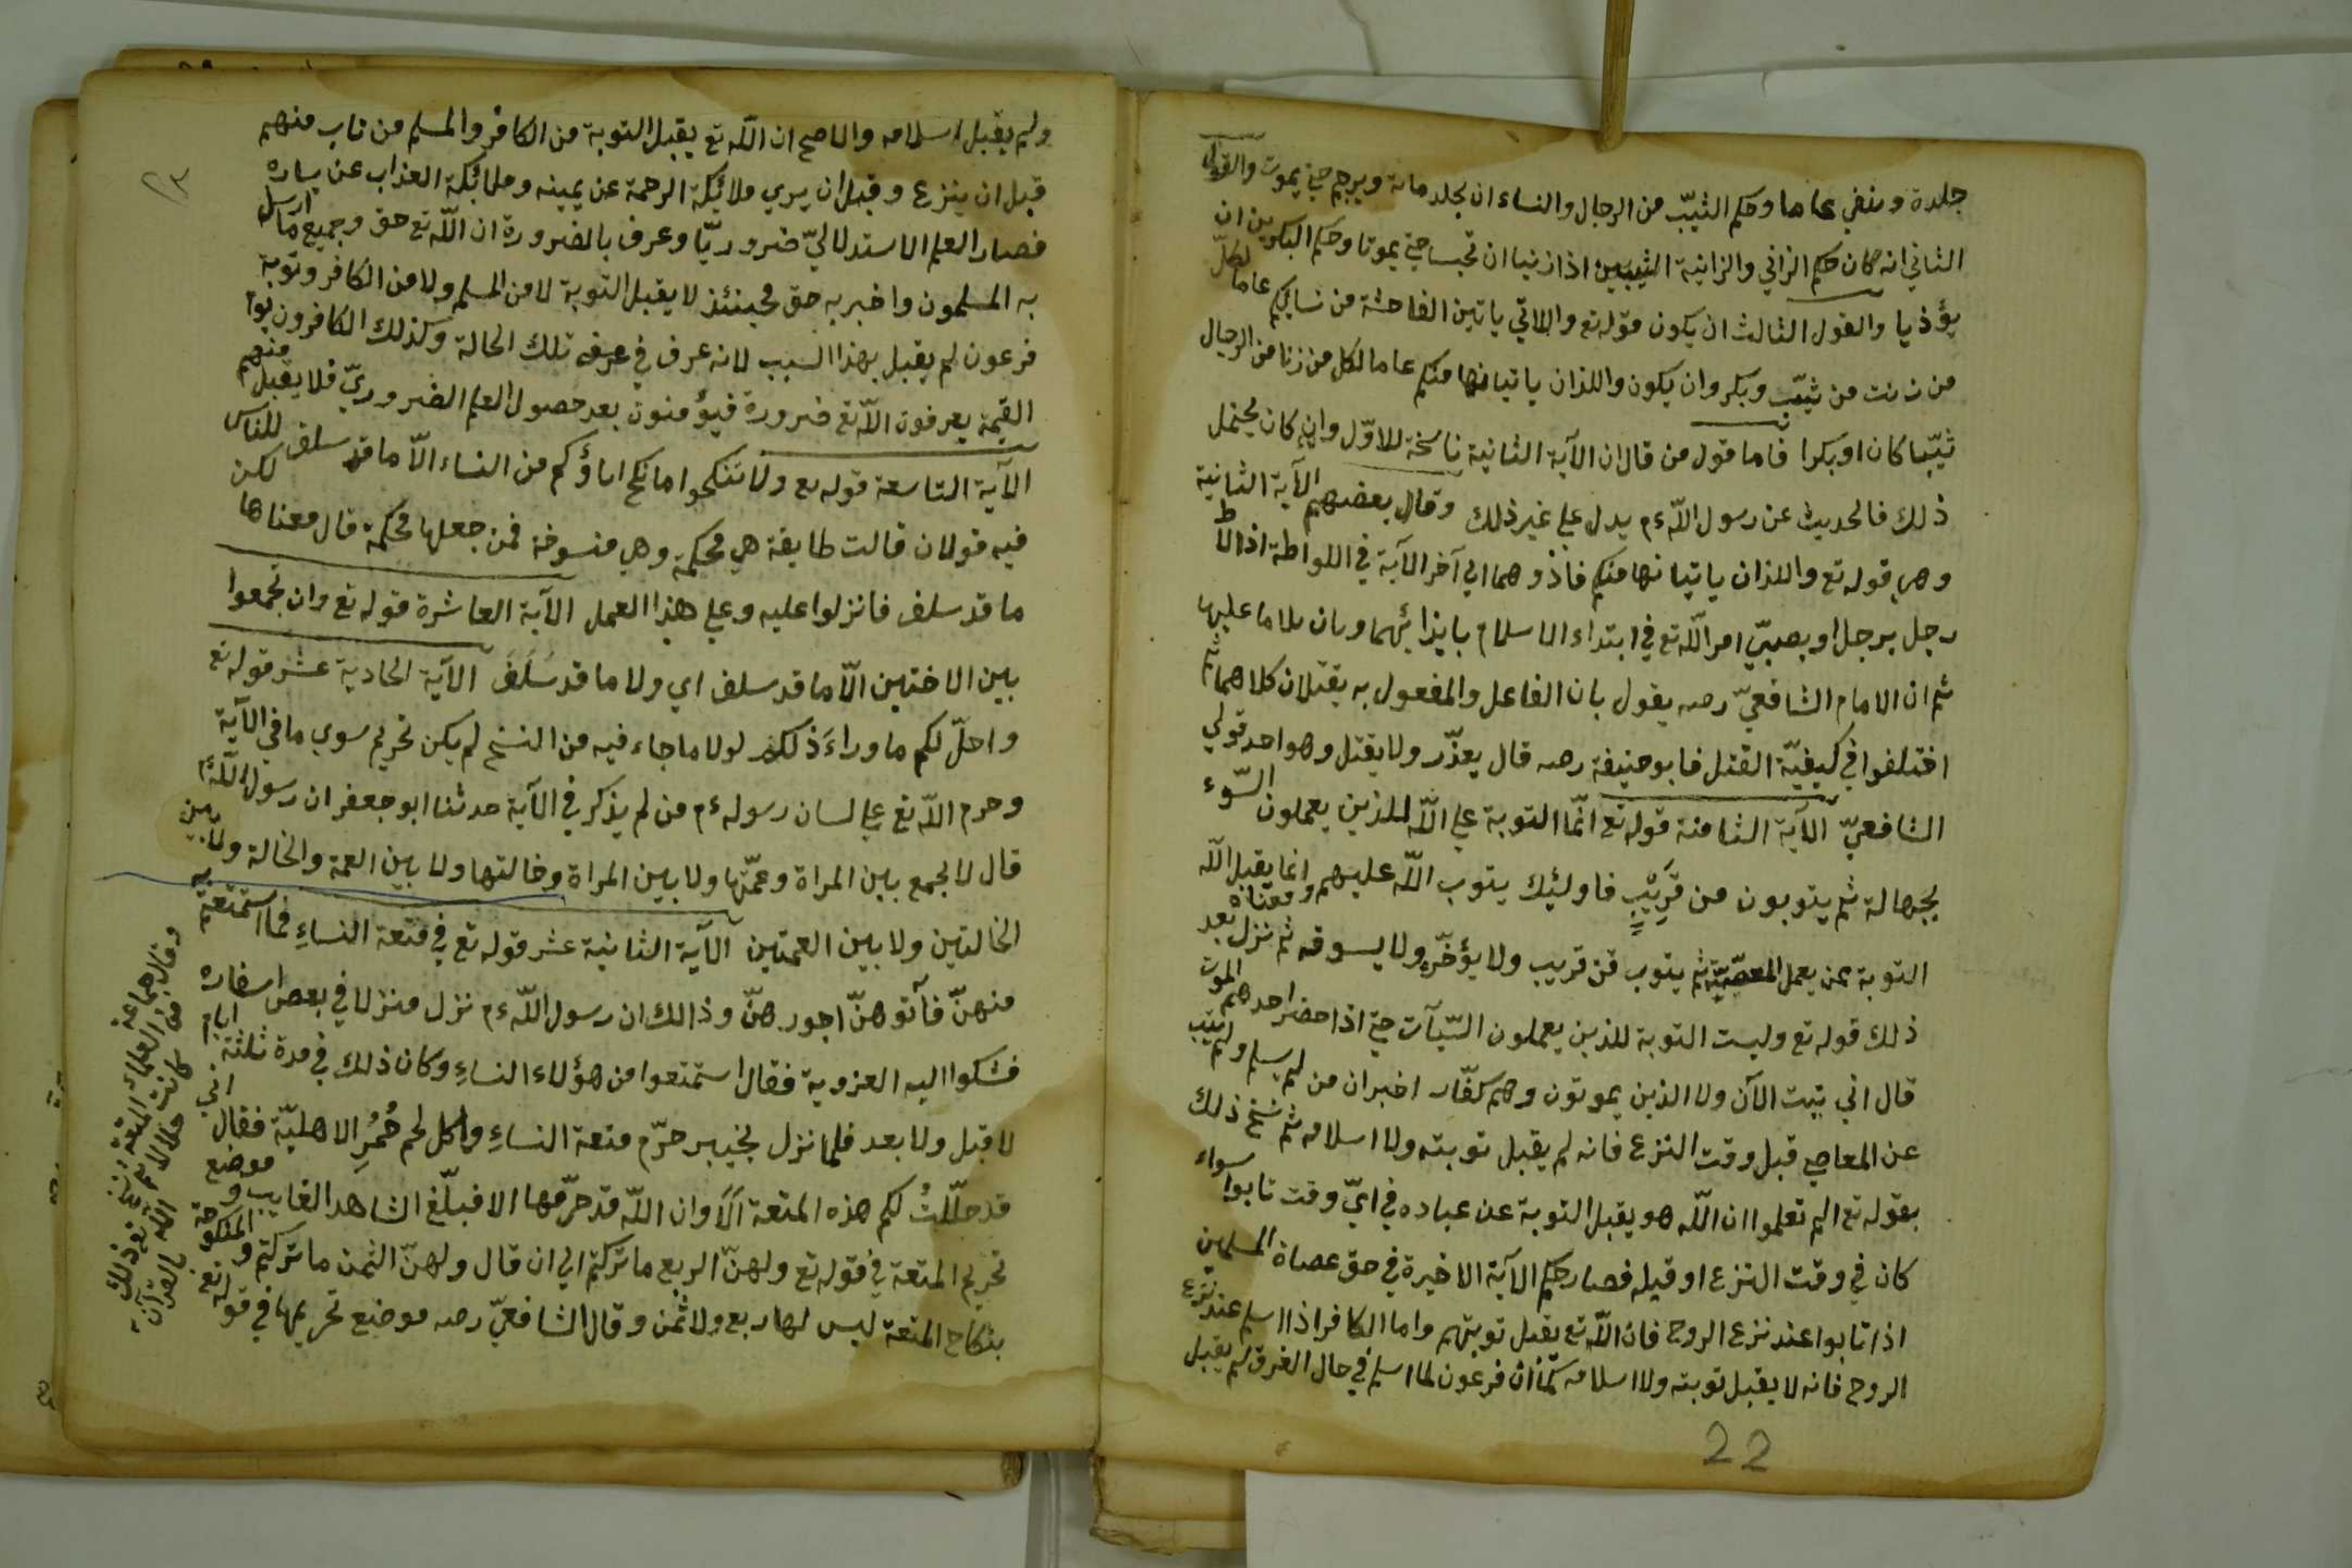 جلدة ونفي عاما وحكم الثيّب من الرجال والنساء ان يجلد مائة ويرجم حتي يموت والقول
الثاني انه كان حكم الزاني والزانية الثيبين اذا زنيا ان تحبسا حتي يموتا وحكم البكرين ان
يؤذيا والقول الثالث ان يكون قوله تع والاتي ياتين الفاحشة من نسايكم عاما لكلّ
من زنت من ثيّب وبكر وان يكون واللذان ياتيانها منكم عاما لكل من زنا من الرجال
ثيّبا كان او بكرا فاما قول من قال ان الآية الثانية ناسخة للاوّل وان كان يحتمل
ذلك فالحديث عن رسول اللّه ءم يدل علي غير ذلك وقال بعضهم الآية الثانية
وهي قوله تع واللذان ياتيانها منكم فاذوهما الي آخر الآية في اللواطة اذا لاط
رجل برجل او بصبيّ امر اللّه تع في ابتداء الاسلام بايذائهما وبان يلاما عليها
ثم ان الامام الشافعيّ رحه يقول بان الفاعل والمفعول به يقتلان كلاهما ثم
اختلفوا في كيفيّة القتل فابو حنيفة رحه قال يعذّر ولا يقتل وهو احد قولي
الشافعيّ الآية الثامنة قوله تع انّما التوبة علي اللّه للذين يعملون السّوء
بجهالة ثم يتوبون من قريب فاولئك يتوب اللّه عليهم ومعناه انما يقبل اللّه
التوبة عمن يعمل المعصيّة ثم يتوب من قريب ولا يؤخّره ولا يسوفه ثم نزل بعد
ذلك قوله تع وليست التوبة للذين يعملون السّيآت حتي اذا حضر احدهم الموت
قال اني تبت الآن ولا الذين يموتون وهم كفّار اخبر ان من لم يسلم ولم يتب
عن المعاصي قبل وقت النزع فانه لم يقبل توبته ولا اسلامه ثم نسخ ذلك
بقوله تع الم تعلموا ان اللّه هو يقبل التوبة عن عباده في ايّ وقت تابوا سواء
كان في وقت النزع او قبله فصار حكم الآية الاخيرة في حق عصاة المسلمين
اذا تابوا عند نزع الروح فان اللّه تع يقبل توبتهم واما الكافر اذا اسلم عند نزع
الروح فانه لا يقبل توبته ولا اسلامه كما ان فرعون لما اسلم في حال الغرق لم يقبل
22
ولم يقبل اسلامه والاصح ان اللّه تع يقبل التوبة من الكافر والمسلم من تاب منهم
قبل ان ينزع وقبل ان يري ملائكة الرحمة عن يمينه وملائكة العذاب عن يساره
فصار العلم الاستدلاليّ ضروريّا وعرف بالضرورة ان اللّه تع حق وجميع ما ارسل
به المسلمون واخبر به حق فحينئذ لا يقبل التوبة لا من المسلم ولا من الكافر وتوبة
فرعون لم يقبل بهذا السبب لانه عرف في تلك الحالة وكذلك الكافرون يوم
القيمة يعرفون اللّه تع ضرورة فيؤمنون بعد حصول العلم الضروريّ فلا يقبل منهم
الآية التاسعة قوله تع ولا تنكحوا ما نكح اباؤكم من النساء الاّ ما قد سلف للناس
فيه قولان قالت طايفة هي محكمة وهي منسوخة فمن جعلها محكمة قال معناها لكن
ما قد سلف فانزلوا عليه وعلي هذا العمل الآية العاشرة قوله تع وان تجمعوا
بين الاختين الاّ ما قد سلف اي ولا ما قد سَلَفَ الآية الحادية عشر قوله تع
واحلّ لكم ما وراءَ ذلكم لولا ما جاء فيه من النسخ لم يكن تحريم سوي ما في الآية
وحرم اللّه تع علي لسان رسوله ءم من لم يذكر في الآية حدثنا ابو جعفر ان رسول اللّه ءم
قال لا يجمع بين المراة وعمّتها ولا بين المراة وخالتها ولا بين العمة والخالة ولا بين
الخالتين ولا بين العمتين الآية الثانية عشر قوله تع في متعة النساءِ فما استمتعتم به
منهنّ فآتوهنّ اجورهنّ وذالك ان رسول اللّه ءم نزل منزلا في بعض اسفاره
فشكوا اليه العزوبة فقال استمتعوا من هؤلاء النساءِ وكان ذلك في مدة ثلثة ايام
لا قبل ولا بعد فلما نزل بخيبر حرّم متعة النساءِ واكل لحم حُمُرِ الاهليّة فقال اني
قد حلّلتُ لكم هذه المتعة اَلاَ وان اللّه قد حرّمها الا فبلّغ الشاهد الغايب وموضع
تحريم المتعة في قوله تع ولهنّ الربع ما تركتم الي ان قال ولهنّ الثمن ما تركتم والمنكوحة
بنكاح المتعة ليس لها ربع ولا ثُمن وقال الشافعيّ رحه موضع تحريمها في قوله تع
وقال جماعة
من العلماء المتعة
كانت حلالا ثم نسخ اللّه تع ذلك
بالقرآن